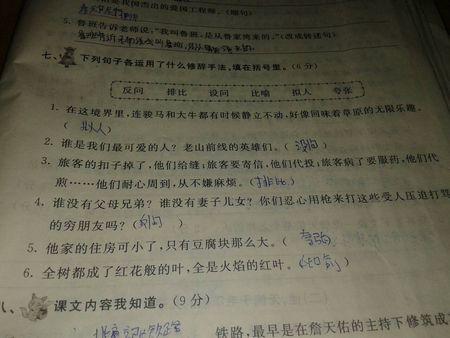 我国杰出的爱国工程师。(缩句)
5. 鲁班告诉老师说:"我叫鲁班,是从鲁家湾来的。"(改成转述句)
七、下列句子各运用了什么修辞手法,填在括号里。(6分)
反问 排比 设问 比喻 拟人 夸张
1. 在这境界里,连骏马和大牛都有时候静立不动,好像回味着草原的无限乐趣。
( 拟人 )
2. 谁是我们最可爱的人?老山前线的英雄们。( 设问 )
3. 旅客的扣子掉了,他们给缝;旅客要寄信,他们代投;旅客病了要服药,他们代
煎……他们耐心周到,从不嫌麻烦。( 排比 )
4. 谁没有父母兄弟?谁没有妻子儿女?你们忍心用枪来打这些受人压迫打骂
的穷朋友吗?( )
5. 他家的住房可小了,只有豆腐块那么大。( )
6. 全树都成了红花般的叶,全是火焰的红叶。( )
八、课文内容我知道。(9分)
铁路,最早是在詹天佑的主持下修筑成